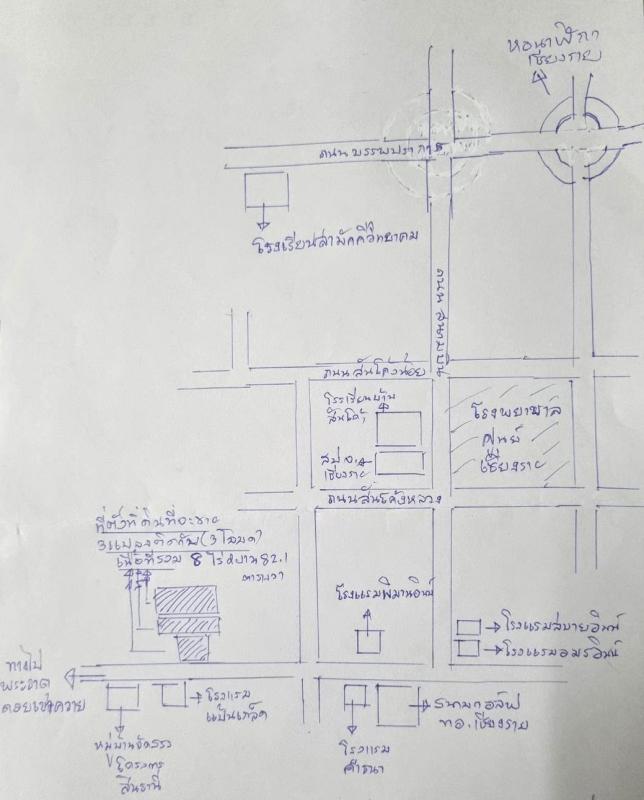 หอนาฬิกา
เชียงราย
ถนนบรรพปราการ
โรงเรียนสามัคคีวิทยาคม
ถนน สนามบิน
ถนนสันโค้งน้อย
โรงเรียนบ้าน
สันโค้ง
โรงพยาบาล
ศูนย์
เชียงราย
สปอ.
เชียงราย
ถนนสันโค้งหลวง
ที่ตั้งที่ดินที่จะขาย
3แปลงติดกัน(3โฉนด)
เนื้อที่รวม 8 ไร่ 2งาน 82.1
ตารางวา
โรงแรมพิมานอินน์
โรงแรมสบายอินน์
โรงแรมอมรอินน์
ทางไป
พระธาตุ
ดอยเขาควาย
โรงแรม
แป้นเกล็ด
สนามกอล์ฟ
ทอ.เชียงราย
หมู่บ้านจัดสรร
โครงการ
สินธานี
โรงแรม